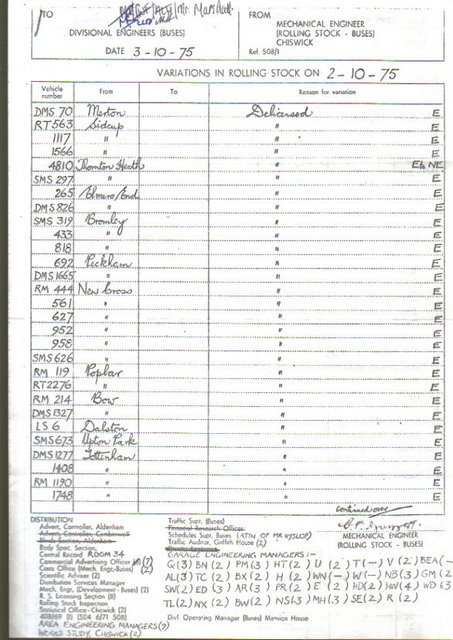 TO
FROM
DIVISIONAL ENGINEERS (BUSES)
MECHANICAL ENGINEER
(ROLLING STOCK - BUSES)
CHISWICK
DATE 3-10-75
Ref. 508/1
VARIATIONS IN ROLLING STOCK ON 2-10-75
Vehicle number From To Reason for variation
DMS 70 Merton Delicensed E
RT 563 Sidcup " E
1117 " " E
1566 " " E
4810 Thornton Heath " E & NE
SMS 297 " " E
265 Elmers End " E
DMS 826 " " E
SMS 319 Bromley " E
433 " " E
818 " " E
692 Peckham " E
DMS 1665 " " E
RM 444 New Cross " E
561 " " E
627 " " E
952 " " E
958 " " E
SMS 626 " " E
RM 119 Poplar " E
RT 2276 " " E
RM 214 Bow " E
DMS 1327 " " E
LS 6 Dalston " E
SMS 673 Upton Park " E
DMS 1277 Tottenham " E
1408 " " E
RM 1190 " " E
1748 " " E
continued over
DISTRIBUTION
Advert. Controller, Aldenham
Advert. Controller, Camberwell
Blinds Section, Aldenham
Body Spec. Section,
Central Record ROOM 34
Commercial Advertising Officer (7)
Coras Office (Mech. Engr.-Buses) (2)
Scientific Adviser (2)
Distribution Services Manager
Mech. Engr. (Development - Buses) (2)
R. S. Licensing Section (8)
Rolling Stock Inspection
Statistical Office (2)
AREA ENGINEERING MANAGERS (7)
WORKS STUDY, CHISWICK (2)
Traffic Supt. (Buses)
Financial Research Officer
Schedules Supt. (Buses)
Traffic Auditor, Griffith House (2)
GARAGE ENGINEERING MANAGERS :-
Q (3) BN (2) PM (3) HT (2) U (2) T (-) V (2) BEA (-
AL (3) TC (2) BX (2) H (2) WN (-) W (-) NB (3) GM (2
SW (2) ED (3) AR (3) PR (2) E (2) HD (2) HW (4) WD (3
TL (2) NX (2) BW (2) NS (3) MH (3) SE (2) R (2)
Divl. Operating Manager (Buses) Mansion House
MECHANICAL ENGINEER
(ROLLING STOCK - BUSES)